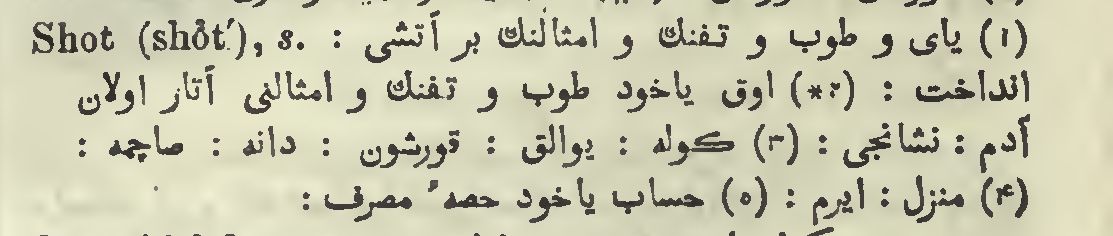 Shot (shŏt′), s. (۱) یای و طوب و تفنك و امثالنك بر آتشی :
انداخت : (۲*) اوق یاخود طوب و تفنك و امثالنی آتار اولان
آدم : نشانجی : (۳) كوله : یوالق : قورشون : دانه : صاچمه :
(۴) منزل : ایرم : (٥) حساب یاخود حصهٔ مصرف :